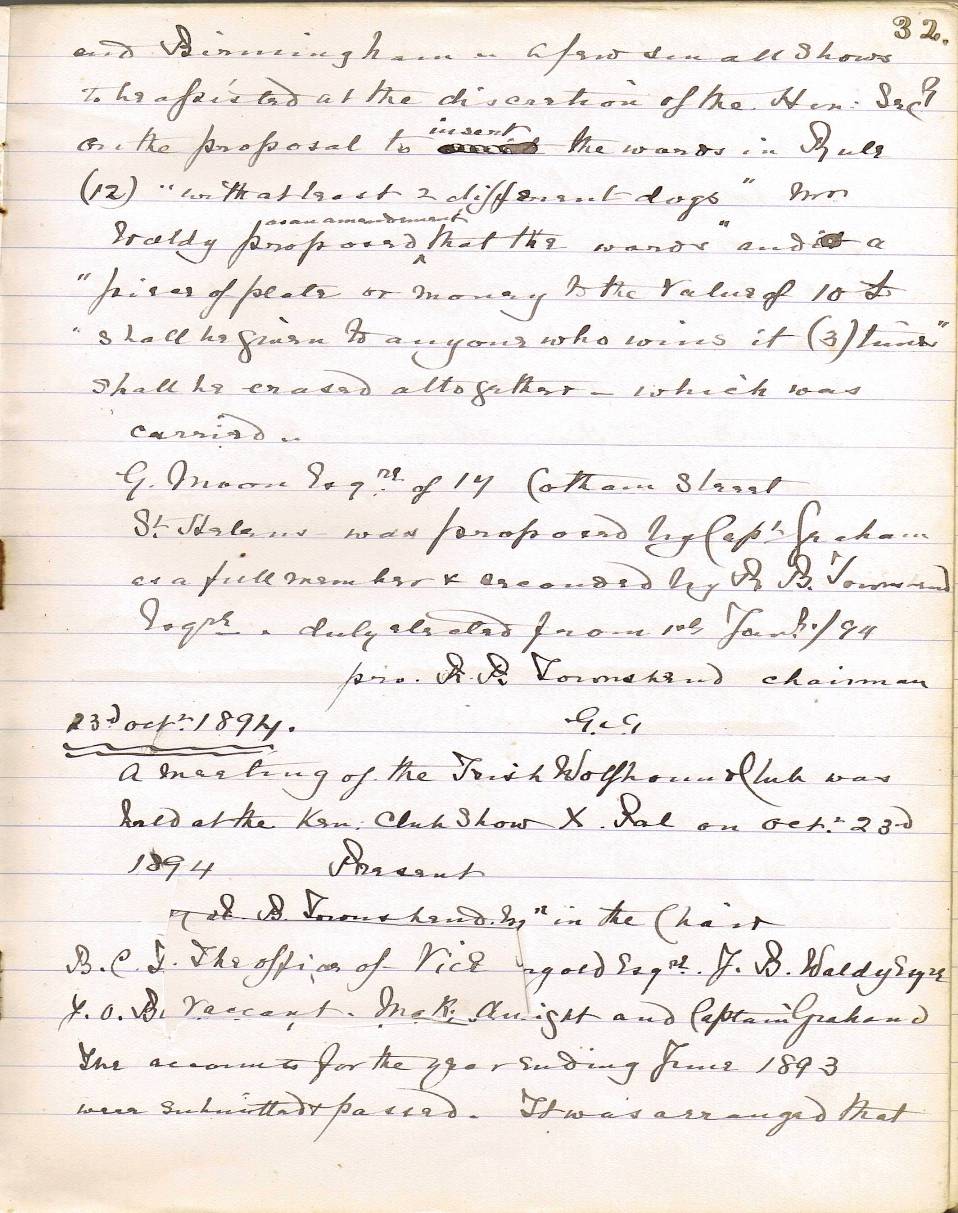 32.
and Birmingham - a few small Shows
to be assisted at the discretion of the Hon: Secy
on the proposal to insert the words in Rule
(12) "with at least 2 different dogs" Mr
Waldy proposed as an amendment that the words "and a
"piece of plate or money to the value of 10 £
"shall be given to anyone who wins it (3) times"
shall be erased altogether - which was
carried -
G. Moon Esqre of 14 Cotham Street
St Helens was proposed by Capt Graham
as a full member & seconded by R B. Townshend
Esqre - duly elected from 1st Jany/94
pro. R. B. Townshend chairman
23d octr 1894. G.A.G
A meeting of the Irish Wolfhound Club was
held at the Ken: Club Show X. Pal on octr 23d
1894 Present
R B. Townshend. Esqr in the Chair
B. C. The office of Vice good Esqre. J. B. Waldy Esqre
vacant. and Captain Graham
The accounts for the year ending June 1893
were submitted & passed. It was arranged that